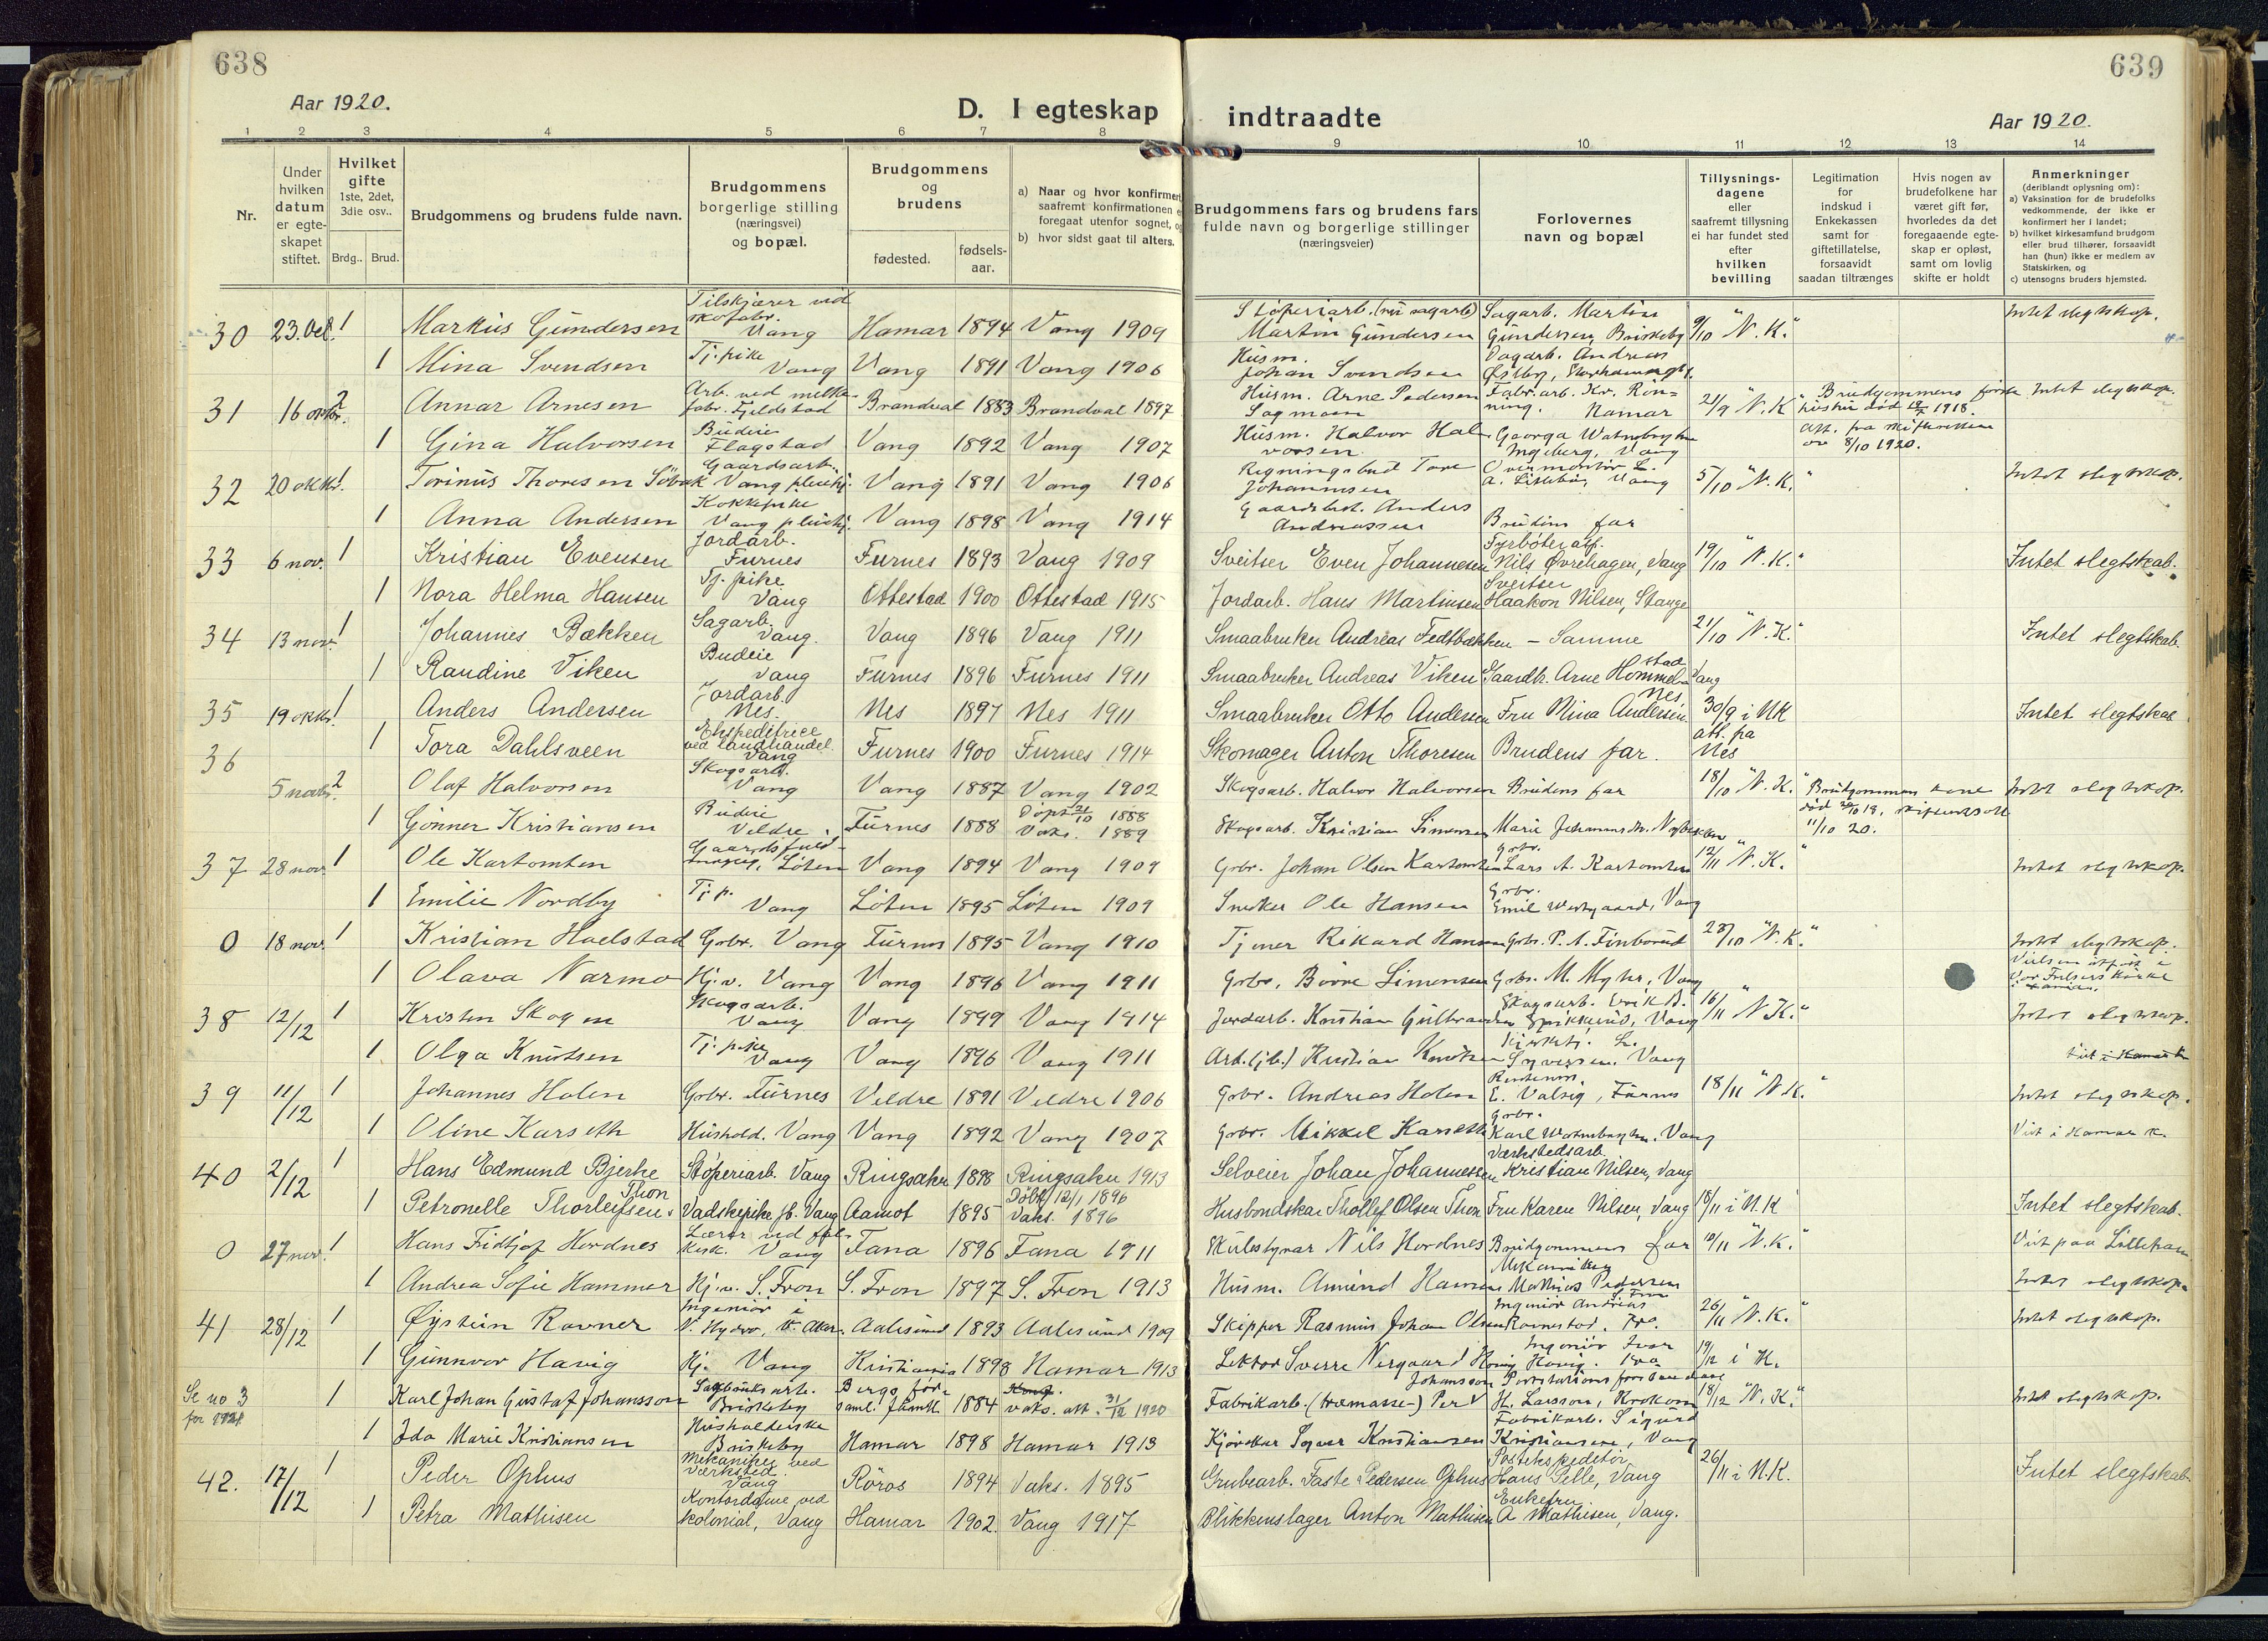 638
639
Aar 1920.
D. I egteskap indtraadte
Aar 1920.
1 2 3 4 5 6 7 8 9 10 11 12 13 14
Nr.
Under hvilken datum er egteskapet stiftet.
Hvilket gifte 1ste, 2det, 3die osv..
Brdg.. Brud.
Brudgommens og brudens fulde navn.
Brudgommens borgerlige stilling (næringsvei) og bopæl.
Brudgommens og brudens
fødested. fødsels-aar.
a) Naar og hvor konfirmert saafremt konfirmationen foregaat utenfor sognet,
b) hvor sidst gaat til alters.
Brudgommens fars og brudens fars fulde navn og borgerlige stillinger (næringsveier)
Forlovernes navn og bopæl
Tillysnings-dagene eller saafremt tillysning ei har fundet sted efter hvilken bevilling
Legitimation for indskud i Enkekassen samt for giftetillatelse, forsaavidt saadan tiltrænges
Hvis nogen av brudefolkene har været gift før, hvorledes da det foregaaende egteskap er opløst, samt om lovlig skifte er holdt
Anmerkninger (deriblandt oplysning om):
a) Vaksination for de brudefolks vedkommende, der ikke er konfirmert her i landet;
b) hvilket kirkesamfund brudgom eller brud tilhører, forsaavidt han (hun) ikke er medlem av Statskirken, og
c) utensogns bruders hjemsted.
30 23. Oct. 1 Markus Gundersen Tilskjærer ved skofabr. Vang Hamar 1894 Vang 1909 Støperiarb. (nu sagarb) Martin Gundersen Sagarb. Martin Gundersen, Briskeby 9/10 "N. K." Intet slegtskap.
1 Mina Svendsen Tj. pike Vang Vang 1891 Vang 1906 Husm. Johan Svendsen Dagarb. Andreas Østby,
31 16 oktbr. 2 Annar Arnesen Arb. ved melkefabr. Fjeldstad Brandval 1883 Brandval 1897 Husm. Arne Pedersen Sagmoen Fabr. arb. Kr. Rönning. Hamar 21/9 "N. K" Brudgommens første hustru død 1918. Att. fra skifteretten 8/10 1920. Intet slegtskap.
1 Gina Halvorsen Budeie Flagstad Vang 1892 Vang 1907 Husm. Halvor Halvorsen Ingeberg, Vang
32 20 oktbr. 1 Torinus Thoresen Söbak Gaardsarb. Vang pleiehj. Vang 1891 Vang 1906 Regningsbud Tore Johannesen Overmontør L. A. Lillebø, Vang 5/10 "N. K." Intet slegtskap.
1 Anna Andersen Kokkepike Vang pleiehj. Vang 1898 Vang 1914 Gaardsbest. Anders Andreassen Brudens far
33 6 nov. 1 Kristian Evensen Jordarb. Furnes Furnes 1893 Vang 1909 Sveitser Even Johannesen Fyrbøter Nils Øvrehagen, Vang 19/10 "N. K." Intet slegtskab.
1 Nora Helma Hansen Tj. pike Vang Ottestad 1900 Ottestad 1915 Jordarb. Hans Martinsen Sveitser Haakon Nilsen, Stange
34 13 nov. 1 Johannes Bækken Sagarb. Vang. Vang 1896 Vang 1911 Smaabruker Andreas Fedtbækken – Samme 21/10 "N. K." Intet slegtskab.
1 Randine Viken Budeie Vang Furnes 1896 Furnes 1911 Smaabruker Andreas Viken Gaardbr. Arne Hommelstad Vang
35 19 oktbr. 1 Anders Andersen Jordarb. Nes. Nes 1897 Nes 1911 Smaabruker Otto Andersen Fru Nina Andersen Nes 30/9 i NK att. fra Nes Intet slegtskab
36 1 Tora Dahlsveen Ekspeditrice ved landhandel Vang Furnes 1900 Furnes 1914 Skomager Anton Thoresen Brudens far.
5 novbr. 2 Olaf Halvorsen Skogsarb. Vang Vang 1887 Vang 1902 Skogsarb. Halvor Halvorsen Brudens far 18/10 "N. K." Brudgommens kone død 18, 11/10 20. Intet slegtskap.
1 Gönner Kristiansen Budeie Veldre Furnes 1888 Döpt 21/10 1888 Vaks. 1889 Skogsarb. Kristian Simensen
37 28 nov. 1 Ole Kartomten Løten Vang 1894 Vang 1909 Grbr. Johan Olsen Kartomten Grbr. Lars A. Kartomten 12/11 "N. K." Intet slegtskap.
1 Emilie Nordby Tj. p. Vang Löten 1895 Löten 1909 Snekker Ole Hansen Grbr. Emil Westgaard, Vang
0 18 nov. 1 Kristian Hoelstad Grbr. Vang Furnes 1895 Vang 1910 Tjener Rikard Hansen Grbr. P. A. Finborud 28/10 "N. K." Intet slegtskap.
1 Olava Narmo Hj. v. Vang Vang 1896 Vang 1911 Grbr. Börre Simensen Grbr. M. Myhr, Vang Vielsen utført i Vor Frelsers kirke
38 12/12 1 Kristen Skogen Skogsarb. Vang Vang 1899 Vang 1914 Jordarb. Kristian Gulbrandsen Skogsarb. Erik B. Spikkerud, Vang 16/11 "N. K." Intet slegtskap.
1 Olga Knutsen Tj. pike Vang Vang 1896 Vang 1911 Arb. (jb.) Kristian Knutsen Kirketj. L. Syversen. Vang Viet i Hamar k
39 11/12 1 Johannes Holen Grbr. Furnes Veldre 1891 Veldre 1906 Grbr. Andreas Holen E. Valsig, Furnes 18/11 "N. K." Intet slegtskap.
1 Oline Karseth Hushold. Vang Vang 1892 Vang 1907 Grbr. Mikkel Karseth Grbr. Karl Vang Viet i Hamar k.
40 2/12 1 Hans Edmund Bjerke Støperiarb. Vang Ringsaker 1898 Ringsaker 1913 Selveier Johan Johannessen Værkstedsarb. Kristian Nilsen, Vang
1 Petronelle Thorleifsen Thon Vadskepike Vang Aamot 1895 Döbt 12/1 1896 Vaks. 1896 Husbondskar Thollef Olsen Thon Fru Karen Nilsen, Vang 18/11 i N. K Intet slegtskab.
0 27 nov. 1 Hans Fridtjof Hordnes Lærer ved Vang Fana 1896 Fana 1911 Skulestyrar Nils Hordnes Brudgommens far 10/11 "N. K." Viet paa Lilleham
1 Andrea Sofie Hammer Hj. v. S. Fron S. Fron 1897 S. Fron 1913 Husm. Amund Hamer Mekaniker Mathias Pedersen S. Fron Intet slegtskap.
41 28/12 1 Øystein Ravner Ingeniør i N. Hydro, V. Aker. Aalesund 1893 Aalesund 1909 Skipper Rasmus Johan Olsen Ingeniør Andreas Ravnestad. Kra. 26/11 "N. K." Intet slegtskap.
1 Gunnvor Havig Hj. Vang Kristiania 1898 Hamar 1913 Lektor Sverre Nergaard Havig Ingeniør Ivar Havig. Kra 19/12 i K.
Se no 3 for 1921 1 Karl Johan Gustaf Johansson Sagbruksarb. Briskeby Bergs församl. Jämtl. 1884 vaks. att. 31/12 1920 Fabrikarb. (træmasse-) Per Johansson H. Larsson, Krokom 18/12 "N. K." Intet slegtskap.
1 Ida Marie Kristiansen Husholderske Briskeby Hamar 1898 Hamar 1913 Kjörekar Syver Kristiansen Fabrikarb. Sigurd Kristiansen, Vang
42. 17/12 1 Peder Ophus Mekaniker ved værksted. Vang Röros 1894 Vaks. 1895 Grubearb. Faste Pedersen Ophus Postekspeditør Hans Selle, Vang 26/11 i N. K. Intet slegtskab
1 Petra Mathisen Kontordame ved kolonial, Vang Hamar 1902. Vang 1917 Blikkenslager Anton Mathisen Enkefru A Mathisen, Vang.